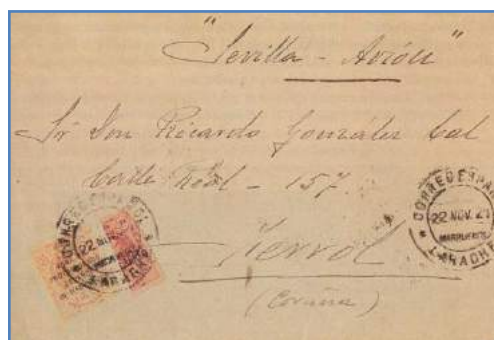 "Sevilla - Avión"
Sr Don Ricardo González Cal
Calle Real - 157.
Ferrol
(Coruña)
CORREO ESPAÑOL
22 NOV. 21
MARRUECOS
* LARACHE *
CORREO ESPAÑOL
22 NOV. 21
MARRUECOS
* LARACHE